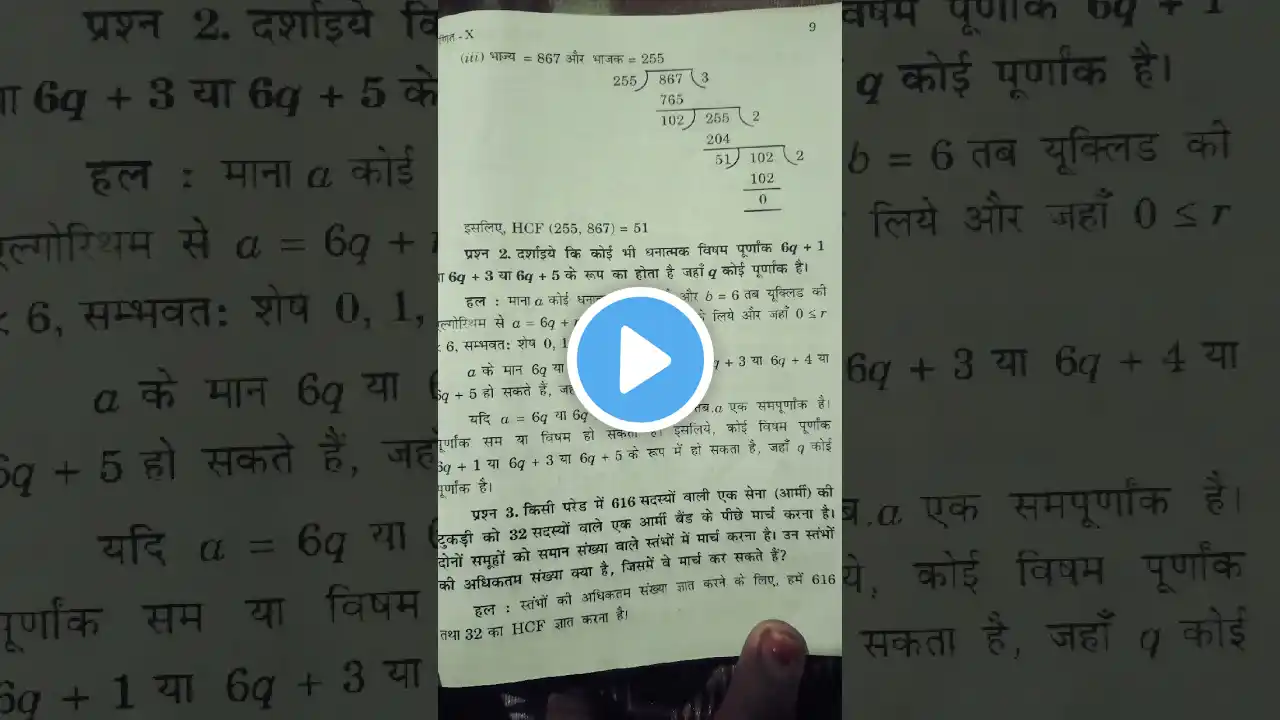 णित-X 9
(iii) भाज्य = 867 और भाजक = 255
255 867 3
765
102 255 2
204
51 102 2
102
0
इसलिए, HCF (255, 867) = 51
प्रश्न 2. दर्शाइये कि कोई भी धनात्मक विषम पूर्णांक 6q + 1
ा 6q + 3 या 6q + 5 के रूप का होता है जहाँ q कोई पूर्णांक है।
हल : माना a कोई और b = 6 तब यूक्लिड की
ल्गोरिथम से a = 6q + लिये और जहाँ 0 ≤ r
< 6, सम्भवत: शेष 0, 1,
a के मान 6q या + 3 या 6q + 4 या
6q + 5 हो सकते हैं,
यदि a = 6q या 6q तब a एक समपूर्णांक है।
पूर्णांक सम या विषम हो सकता है। इसलिये, कोई विषम पूर्णांक
6q + 1 या 6q + 3 या 6q + 5 के रूप में हो सकता है, जहाँ q कोई
पूर्णांक है।
प्रश्न 3. किसी परेड में 616 सदस्यों वाली एक सेना (आर्मी) की
टुकड़ी को 32 सदस्यों वाले एक आर्मी बैंड के पीछे मार्च करना है।
दोनों समूहों को समान संख्या वाले स्तंभों में मार्च करना है। उन स्तंभों
की अधिकतम संख्या क्या है, जिसमें वे मार्च कर सकते हैं?
हल : स्तंभों की अधिकतम संख्या ज्ञात करने के लिए, हमें 616
तथा 32 का HCF ज्ञात करना है।